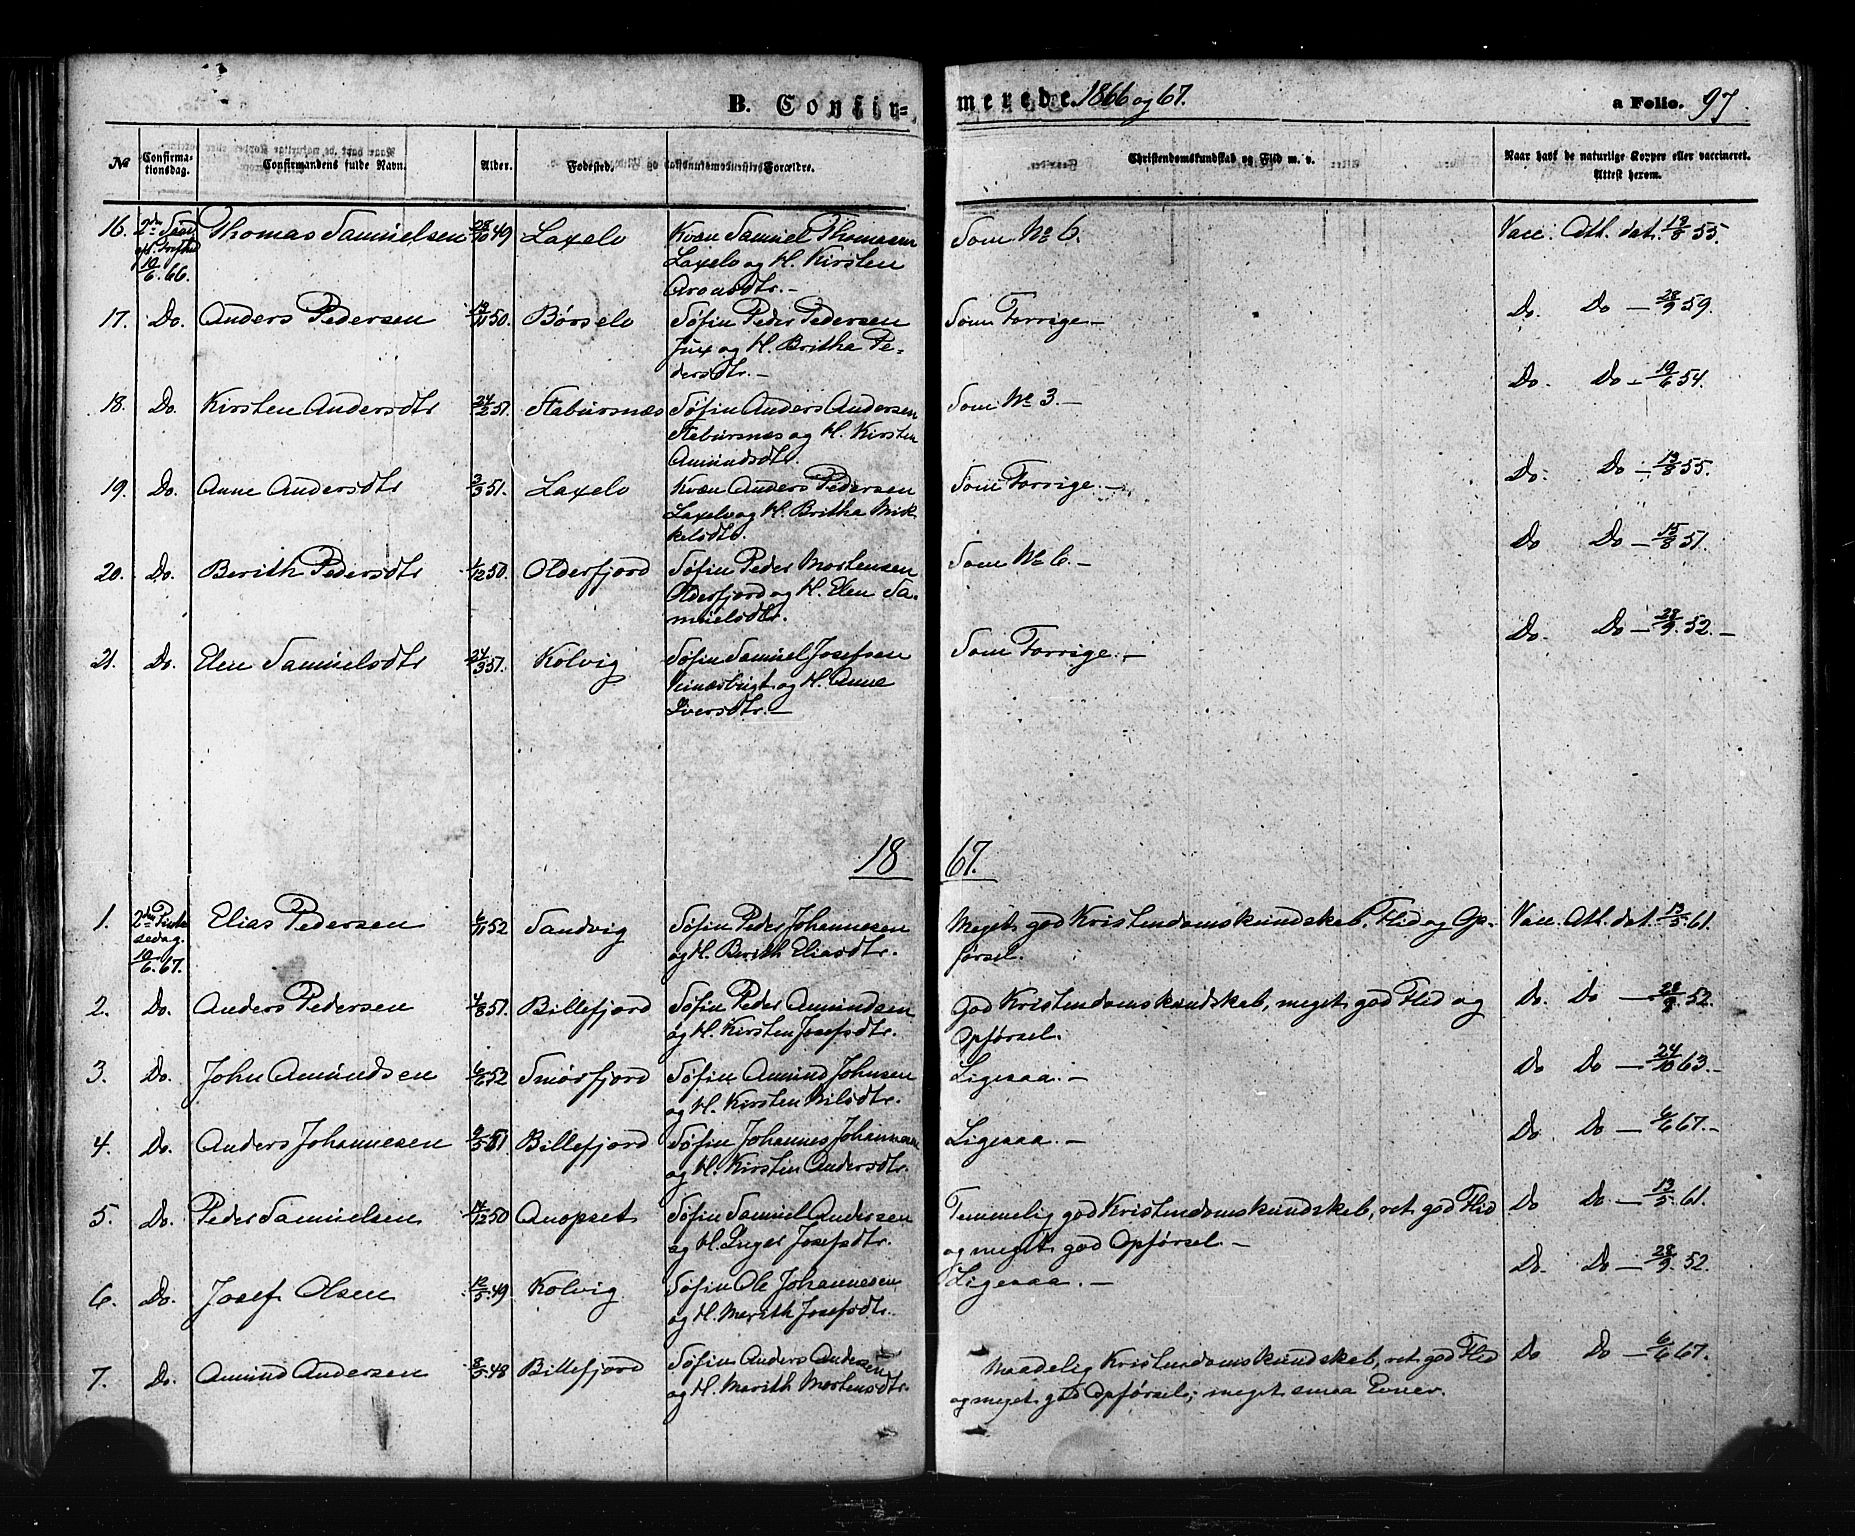 B. Confir-
merede 1866 og 67.
a Folio. 97.
№
Confirma-
tionsdag.
Confirmandens fulde Navn.
Alder.
Fødested.
Forældre.
Christendomskundskab og Flid m. v.
Naar havt de naturlige Kopper eller vaccineret.
Attest herom.
16. 2den Thomas Samuelsen 28/10 49 Laxelv Kvæn Samuel Thomasen Som No 6. Vacc. Att. dat. 13/8 55.
Laxelv og H. Kirsten
10/6. 66. Aronsdtr.-
17. Do. Anders Pedersen 50. Børselv Søfin Peder Pedersen Som Forrige.- Do. Do - 28/9 59.
og H. Britha Pe-
dersdtr.-
18. Do. Kirsten Andersdtr 24/2 51. Stabursnæs Søfin Anders Andersen Som No 3.- Do. Do - 19/6 54.
Stabursnæs og H. Kirsten
Amundsdtr.
19. Do. Anne Andersdtr 2/3 51. Laxelv Kvæn Anders Pedersen Som Forrige.- Do. Do - 13/8 55.
Laxelv og H. Britha Mik-
kelsdtr.
20. Do. Berith Pedersdtr 1/12 50. Olderfjord Søfin Peder Mortensen Som No 6.- Do Do - 15/8 51.
Olderfjord og H. Elen Sa-
muelsdtr.
21. Do. Elen Samuelsdtr 24/3 51. Kolvig Søfin Samuel Josefsen Som Forrige.- Do. Do - 28/9. 52.-
og H. Anne
Iversdtr.-
18 67.
1. 2den Pint- Elias Pedersen 6/11 52 Sandvig Søfin Peder Johannesen Meget god Kristendomskundskab, Flid og Op- Vacc. Att. dat. 13/5. 61.
sedag. og H. Berith Eliasdtr. førsel.
10/6. 67.
2. Do. Anders Pedersen 4/8 51. Billefjord Søfin Peder Amundsen God Kristendomskundskab, meget god Flid og Do. Do - 28/9 52.
og H. Kirsten Josefsdtr. Opførsel.
3. Do. John Amundsen 6/6 52 Smørfjord Søfin Amund Johnsen Ligesaa.- Do Do - 24/10 63.-
og H. Kirsten Nilsdtr.
4. Do. Anders Johannesen 51 Billefjord Søfin Johannes Johannesen Ligesaa.- Do Do - 6/6 67.-
og H. Kirsten Andersdtr.
5. Do. Peder Samuelsen 14/12 50 Anopset Søfin Samuel Andersen Temmelig god Kristendomskundskab, ret god Flid Do Do - 13/5. 61.
og H. Inger Josefsdtr. og meget god Opførsel.-
6. Do. Josef Olsen 12/5. 49 Kolvig Søfin Ole Johannesen Ligesaa.- Do. Do - 28/9. 52.
og H. Merith Josefsdtr.
7. Do. Amund Andersen 8/5. 48 Billefjord Søfin Anders Andersen Maadelig Kristendomskundskab, ret god Flid Do Do - 6/6 67.
og H. Marith Mortensdtr. og meget god Opførsel; meget smaa Evner.